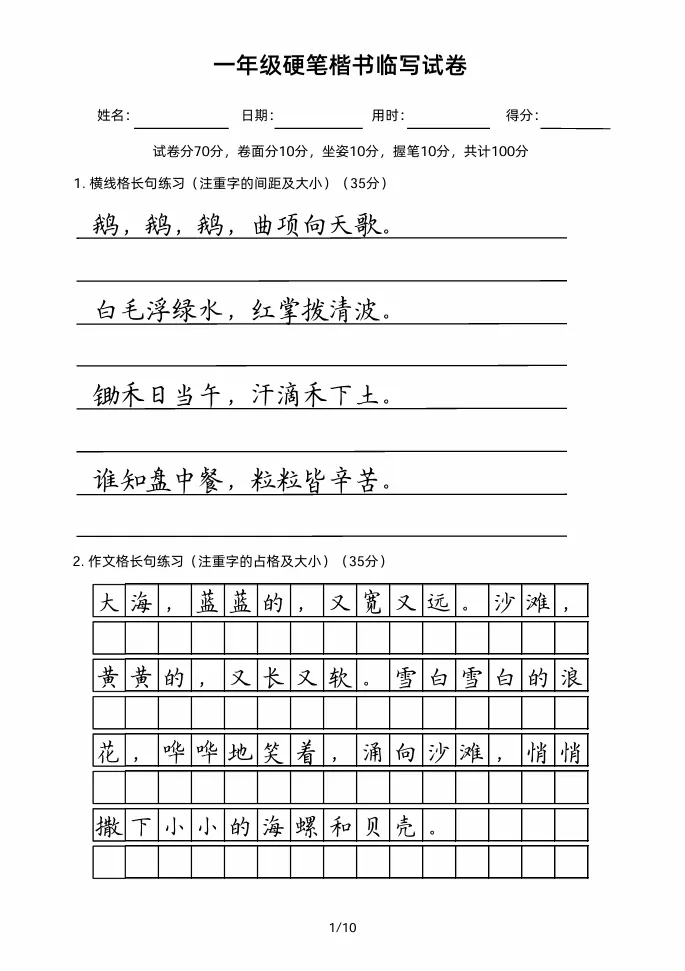 一年级硬笔楷书临写试卷
姓名： 日期： 用时： 得分：
试卷分70分，卷面分10分，坐姿10分，握笔10分，共计100分
1. 横线格长句练习（注重字的间距及大小）（35分）
鹅，鹅，鹅，曲项向天歌。
白毛浮绿水，红掌拨清波。
锄禾日当午，汗滴禾下土。
谁知盘中餐，粒粒皆辛苦。
2. 作文格长句练习（注重字的占格及大小）（35分）
大海，蓝蓝的，又宽又远。沙滩，
黄黄的，又长又软。雪白雪白的浪
花，哗哗地笑着，涌向沙滩，悄悄
撒下小小的海螺和贝壳。
1/10